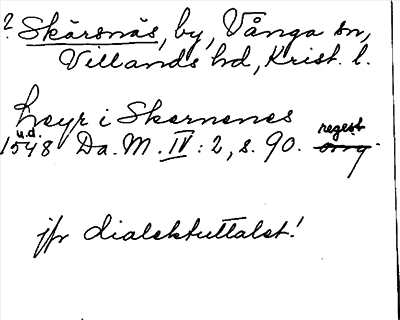 ? Skärsnäs, by, Vånga sn,
Villands hd, Krist. l.
i Skernenes
u.d. regest
1548 Da. M. IV: 2, s. 90. orig.
jfr dialektuttalet!